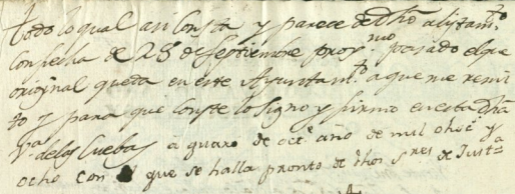 todo lo qual asi Consta y parece de Dho alistam.to
con fecha de 28 de Septiembre prox.mo pasado el que
original queda en este Ayuntam.to a que me remi
to y para que Conste lo signo y firmo en esta Dha
V.a de las Cuebas a quatro de oct.e año de mil ochoc.s y
ocho con el que se halla pronto de dhos S.res de Just.a